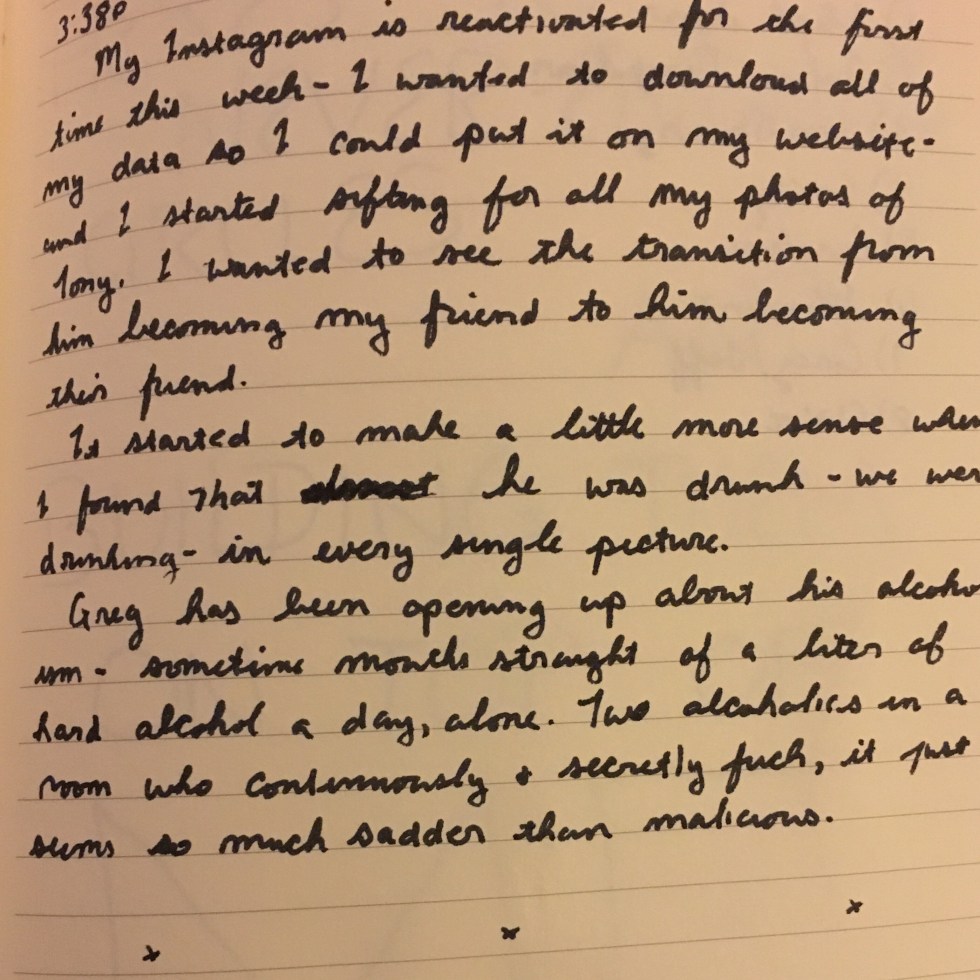 3:38p
My Instagram is reactivated for the first
time this week - I wanted to download all of
my data so I could put it on my website -
and I started sifting for all my photos of
Tony. I wanted to see the transition from
him becoming my friend to him becoming
this friend.
It started to make a little more sense when
I found that he was drunk - we wer
drinking - in every single picture.
Greg has been opening up about his alcoho
ism - sometime months straight of a liter of
hard alcohol a day, alone. Two alcoholics in a
room who continuously + secretly fuck, it just
seems so much sadder than malicious.
x x x